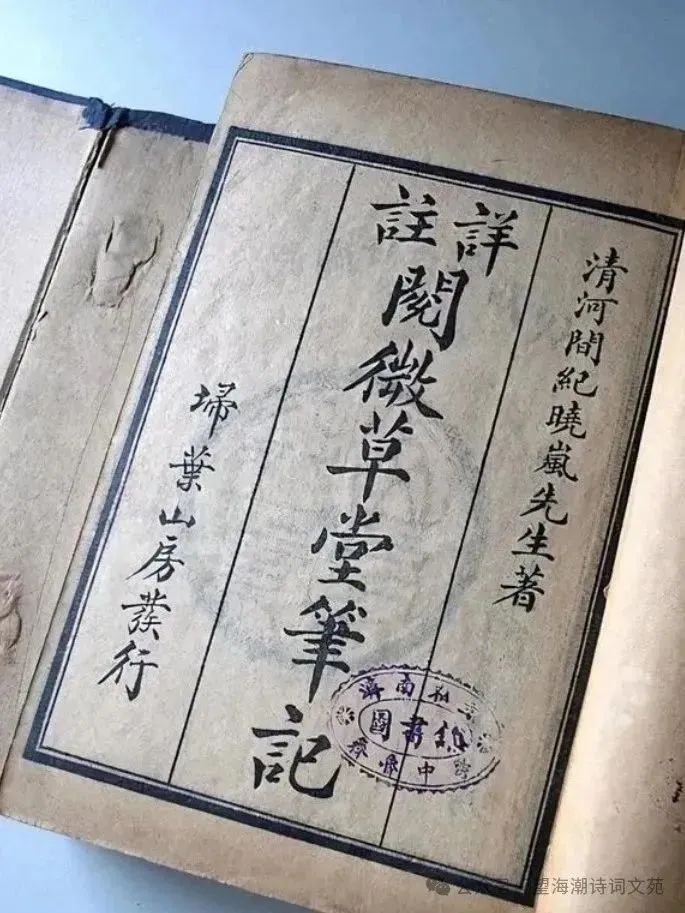 清河間紀曉嵐先生著
詳註閱微草堂筆記
埽葉山房發行
濟南
圖書
望海潮诗词文苑